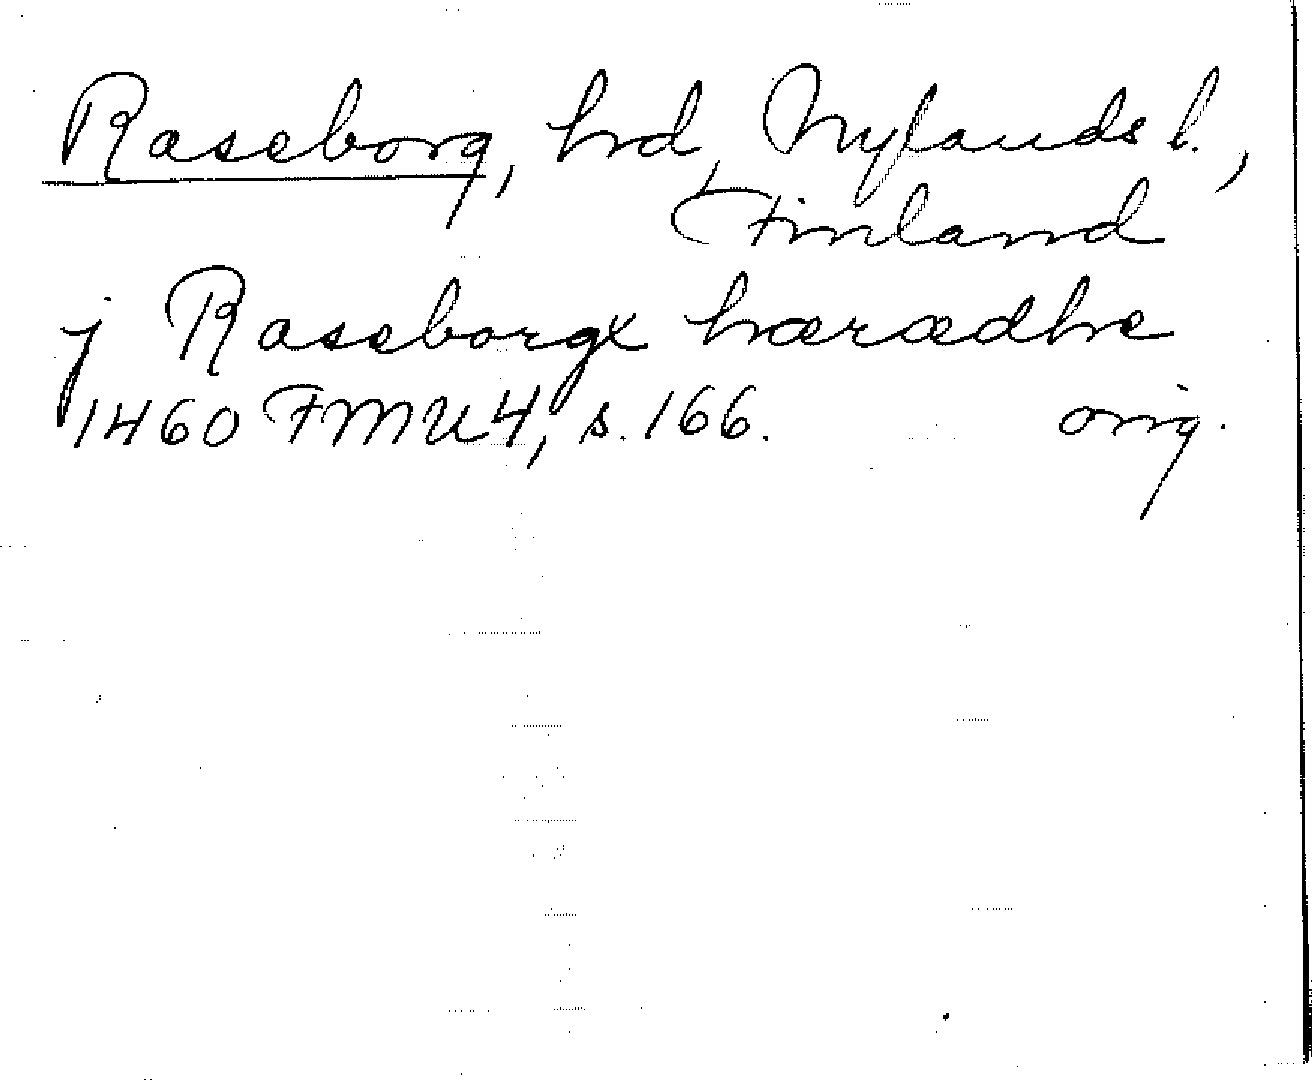 Raseborg, hrd, Nylands l.,
Finland
j Raseborgx hærædhe
1460 FMU 4, s. 166. orig.